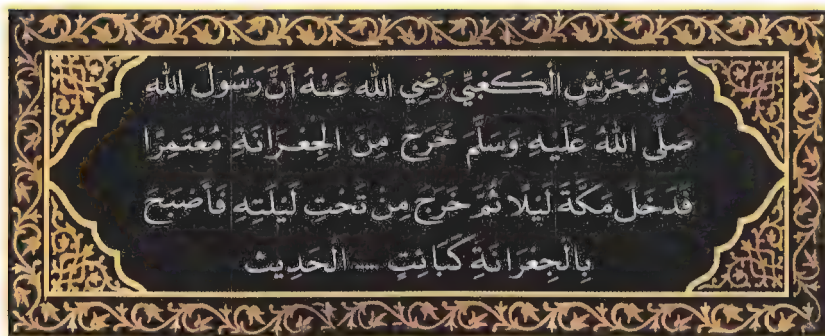 عَنْ مُحَرِّشٍ الْكَعْبِيِّ رَضِي الله عَنْهُ أَنَّ رَسُولَ الله
صَلَّى اللهُ عَلَيْهِ وَسَلَّمَ خَرَجَ مِنَ الْجِعْرَانَةِ مُعْتَمِرًا
فَدَخَلَ مَكَّةَ لَيْلًا ثُمَّ خَرَجَ مِنْ تَحْتِ لَيْلَتِهِ فَأَصْبَحَ
بِالْجِعْرَانَةِ كَبَائِتٍ .... الْحَدِيث